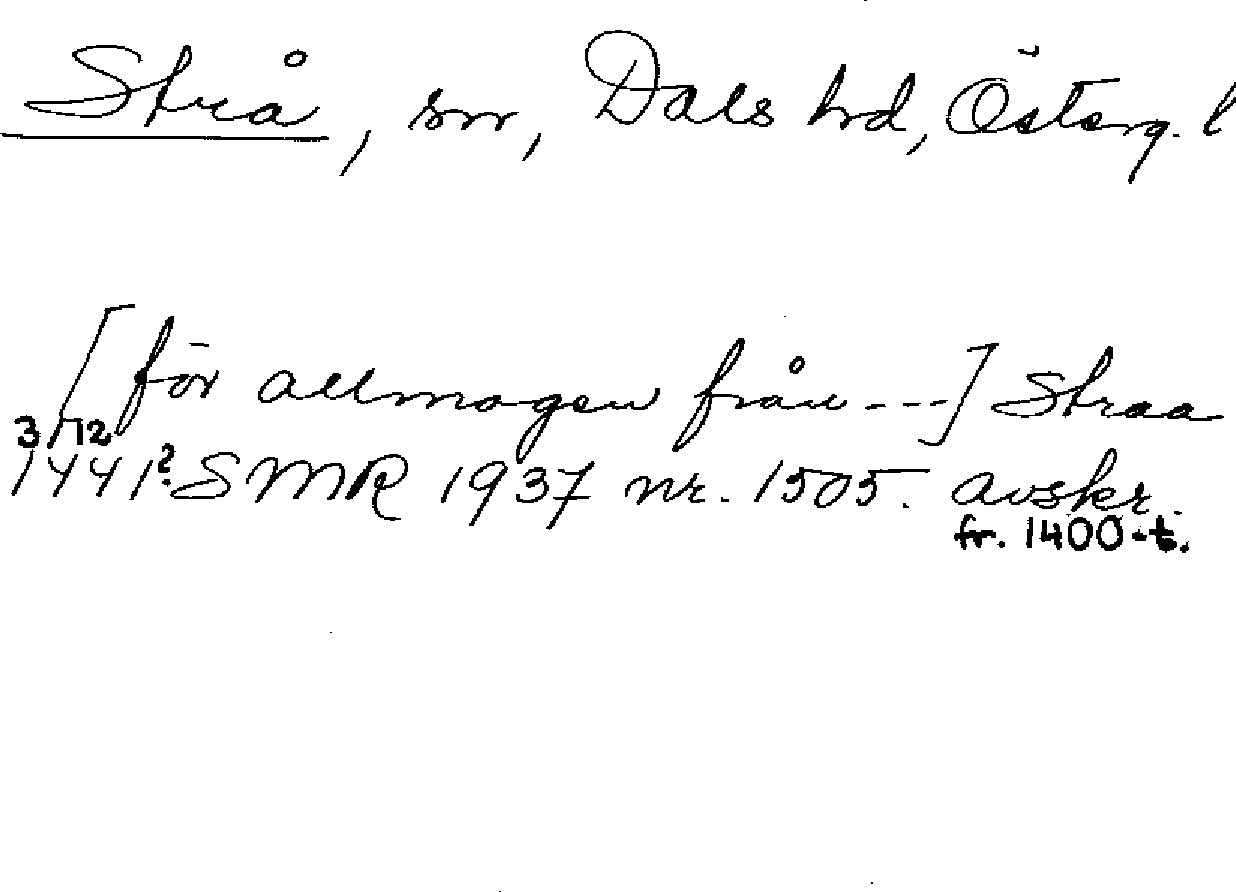 Strå, sn, Dals hd, Österg. l
[för allmogen från ---] Straa
3/12
1441? SMR 1937 nr. 1505. avskr.
fr. 1400-t.